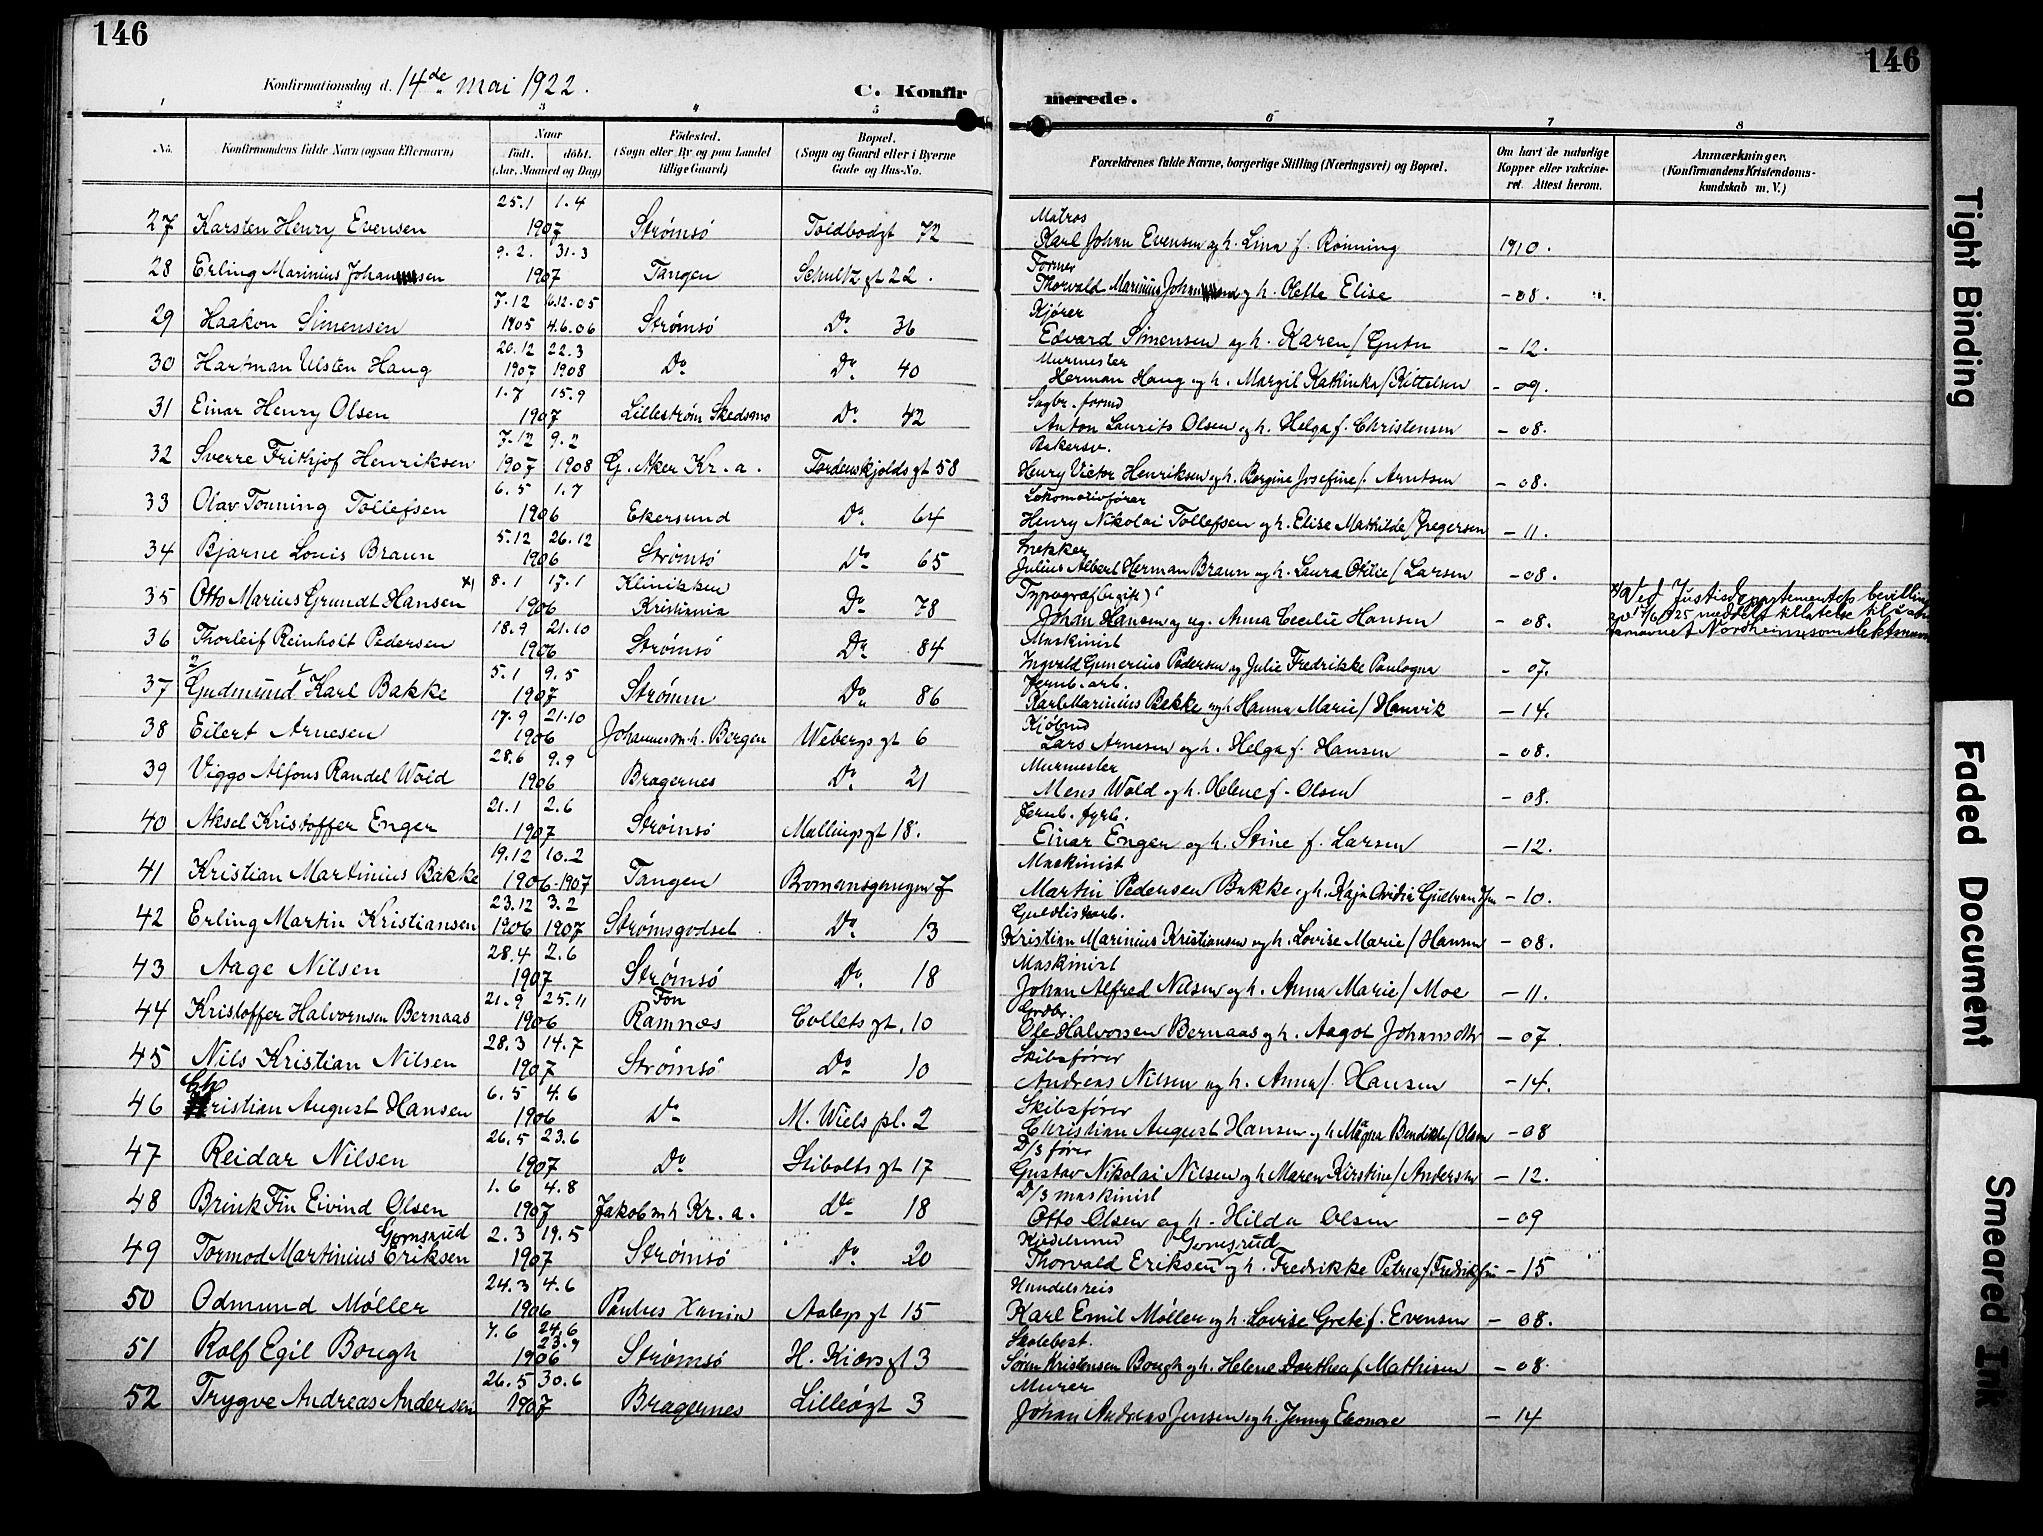 146
146
Konfirmationsdag d. 14de mai 1922.
C. Konfir merede.
1 2 3 4 5 6 7 8
No.
Konfirmandens fulde Navn (ogsaa Efternavn)
Naar
Født. døbt.
(Aar, Maaned og Dag)
Fødested.
(Sogn eller By og paa Landet tillige Gaard)
Bopæl.
(Sogn og Gaard eller i Byerne Gade og Hus-No.
Forældrenes fulde Navne, borgerlige Stilling (Næringsvei) og Bopæl.
Om havt de naturlige Kopper eller vakcineret. Attest herom.
Anmærkninger.
(Konfirmandens Kristendomskundskab m. V.)
27 Karsten Henry Evensen 25.1 1.4 1907 Strømsø Toldbodgt 72 Matros Karl Johan Evensen og h. Lina f. Rønning 1910.
28 Erling Marinius Johansen 9.2. 31.3 1907 Tangen Schultz gt 22. Former Thorvald Marinius og h. Olette Elise - 08.
29 Haakon Simensen 7.12 1905 6.12.05 4.6.06 Strømsø Do 36 Kjører Edvard Simensen og h. Karen - 12.
30 Hartman Ulsten Haug 20.12 1907 22.3 1908 Do Do 40 Murmester Herman Haug og h. Margit Kathinka f Kittelsen - 09.
31 Einar Henry Olsen 1.7 15.9 1907 Lillestrøm Skedsmo Do 42 Sagbr. formd Anton Laurits Olsen og h. Helga f. Christensen - 08.
32 Sverre Frithjof Henriksen 7.12 1907 9.2 1908 G. Aker Kr.a. Tordenskjolds gt 58 Bakersv. Henry Victor Henriksen og h. Borgine Josefine f. Arntsen - 08.
33 Olav Tonning Tollefsen 6.5 1.7 1906 Ekersund Do 64 Lokomotivfører Henry Nikolai Tollefsen og h. Elise Mathilde f Gregersen - 11.
34 Bjarne Louis Braun 5.12 26.12 1906 Strømsø Do 65 Snekker Julius Albert Herman Braun og h. Laura Otilie f Larsen - 08.
35 Otto Marius Grundt Hansen x) 8.1 17.1 1906 Klinikken Kristiania Do 78 Typograf Johan Hansen og ug. Anna Cecilie Hansen - 08. x) Ved Justisdepartementets bevilling av 1/6 1925 meddelt tillatelse til navnet Nordheim som slektsnavn
36 Thorleif Reinholt Pedersen 18.9 21.10 1906 Strømsø Do 84 Maskinist Ingvald Gunerius Pedersen og Julie Fredrikke - 07.
37 Gudmund Karl Bakke 5.1 9.5 1907 Strømm Do 86 Jernb. arb. Karl Marinius Bekke og h Hanna Marie f Hanvik - 14.
38 Eilert Arnesen 17.9 21.10 1906 Johannes m.h. Bergen Webergs gt 6 Kjøbmd Lars Arnesen og h. Helga f. Hansen - 08.
39 Viggo Alfons Randel Wold 28.6 9.9 1906 Bragernes Do 21 Murmester Mens Wold og h. Helene f. Olsen - 08.
40 Aksel Kristoffer Enger 21.1 2.6 1907 Strømsø Mallings gt 18. Jernb. fyrb. Einar Enger og h. Stine f. Larsen - 12.
41 Kristian Martinius Bakke 19.12 10.2 1906-1907 Tangen 7 Maskinist Martin Pedersen Bakke og h. Kaja - 10.
42 Erling Martin Kristiansen 23.12 1906 3.2 1907 Strømsgodset Do 13 Guldlistarb. Kristian Marinius Kristiansen og h. Lovise Marie f Hansen - 08.
43 Aage Nilsen 28.4 2.6 1907 Strømsø Do 18 Maskinist Johan Alfred Nilsen og h. Anna Marie f Moe - 11.
44 Kristoffer Halvornsen Bernaas 21.9 25.11 1906 Fon Ramnæs Collets gt. 10 Grdbr. Ole Halvorsen Bernaas og h. Aagot Johansdtr - 07
45 Nils Kristian Nilsen 28.3 14.7 1907 Strømsø Do 10 Skibsfører Andreas Nilsen og h. Anna f. Hansen - 14.
46 Christian August Hansen 6.5 4.6 1906 Do M. Wiels pl. 2 Skibsfører Christian August Hansen og h Magna Bendikte f Olsen - 08
47 Reidar Nilsen 26.5 23.6 1907 Do Stibolts gt 17 D/S fører Gustav Nikolai Nilsen og h Maren Kirstine f Andersen - 12.
48 Brink Fin Eivind Olsen 1.6 4.8 1907 Jakob m h Kr.a. Do 18 D/S maskinist Otto Olsen og h. Hilda Olsen - 09
49 Tormod Martinius Eriksen Gomsrud 2.3 19.5 1907 Strømsø Do 20 Kjedelsmed Thorvald Eriksen Gomsrud og h. Fredrikke Petrea f Fredriksen - 15
50 Odmund Møller 24.3 4.6 1906 Paulus X ania Aalesgt 15 Handelsreis Karl Emil Møller og h. Lovise Grete f. Evensen - 08.
51 Rolf Egil Bough 7.6 24.6 23.9 1906 Strømsø H. Kiærs gt 3 Skolebest. Søren Kristensen Bough og h. Helene Dorthea f Mathisen - 08.
52 Trygve Andreas Andersen 26.5 30.6 1907 Bragernes Lilleøgt 3 Murer Johan Andreas Jensen og h. Jenny Eleonore - 14
Tight Binding
Faded Document
Smeared Ink